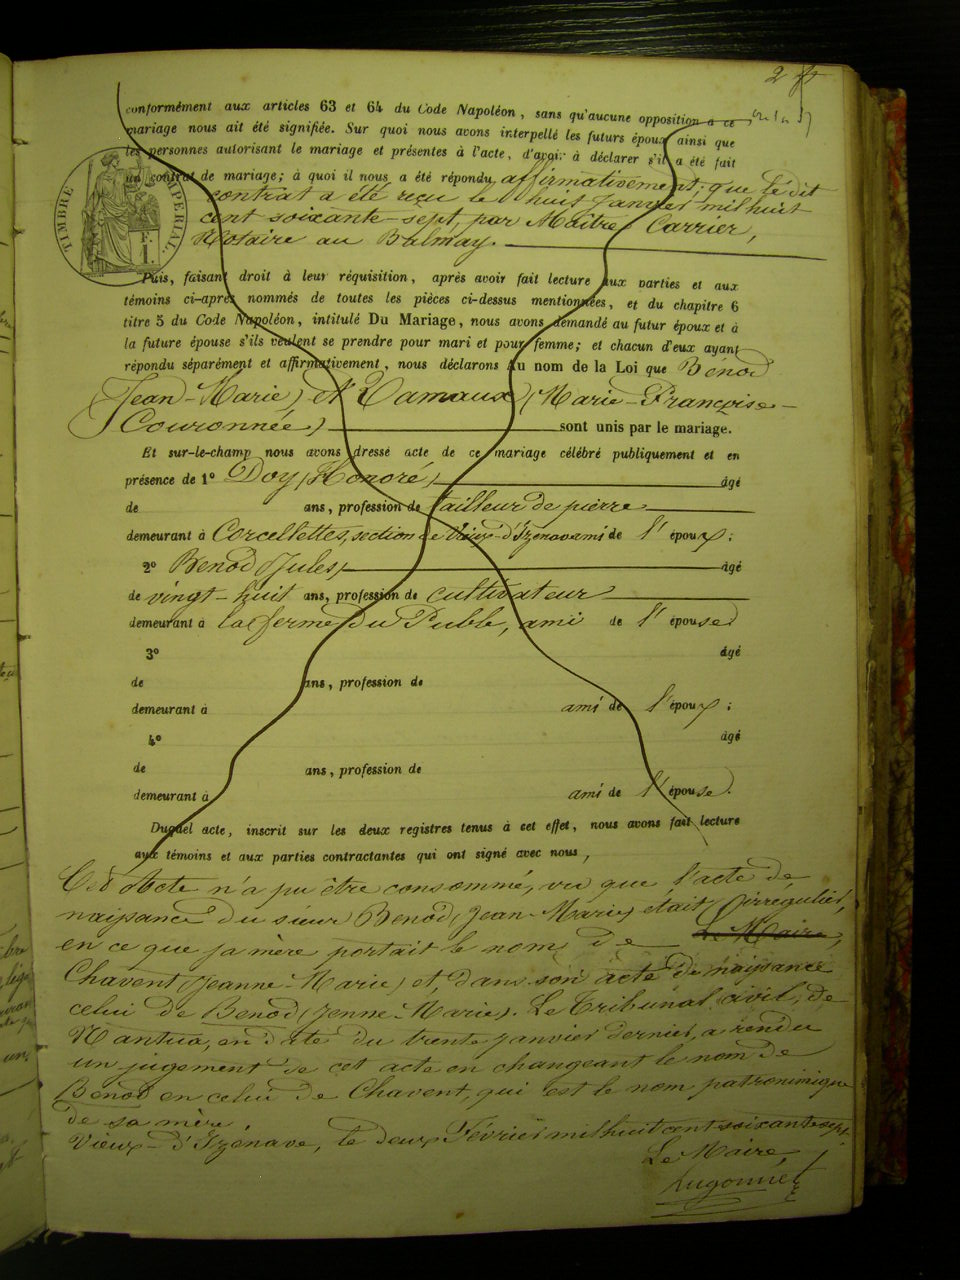 2
conformément aux articles 63 et 64 du Code Napoléon, sans qu'aucune opposition à ce
mariage nous ait été signifiée. Sur quoi nous avons interpellé les futurs époux ainsi que
les personnes autorisant le mariage et présentes à l'acte, d'avoir à déclarer s'il a été fait
un contrat de mariage; à quoi il nous a été répondu affirmativement; que le dit
contrat a été reçu le huit Janvier mil huit
cent soixante-sept, par Maître Carrier,
Notaire au Balmay.
TIMBRE IMPERIAL.
F.
1.
Puis, faisant droit à leur réquisition, après avoir fait lecture aux parties et aux
témoins ci-après nommés de toutes les pièces ci-dessus mentionnées, et du chapitre 6
titre 5 du Code Napoléon, intitulé Du Mariage, nous avons demandé au futur époux et à
la future épouse s'ils veulent se prendre pour mari et pour femme; et chacun d'eux ayant
répondu séparément et affirmativement, nous déclarons Au nom de la Loi que Bénod
(Jean-Marie) et Damaux (Marie-Françoise-
Couronnée) sont unis par le mariage.
Et sur-le-champ nous avons dressé acte de ce mariage célébré publiquement et en
présence de 1° Doy (Honoré) âgé
de ans, profession de tailleur de pierre
demeurant à Corcellettes, section de Vieux-d'Izenave ami de l'époux;
2° Benod Jules âgé
de vingt-huit ans, profession de cultivateur
demeurant à la ferme du Puble, ami de l'épouse
3° âgé
de ans, profession de
demeurant à ami de l'époux;
4° âgé
de ans, profession de
demeurant à ami de l'épouse.
Duquel acte, inscrit sur les deux registres tenus à cet effet, nous avons fait lecture
aux témoins et aux parties contractantes qui ont signé avec nous,
Cet Acte n'a pu être consommé, vu que l'acte de
naissance du sieur Benod (Jean-Marie) était irrégulier,
en ce que sa mère portait le nom de Le Maire,
Chavent (Jeanne-Marie) et, dans son acte de naissance
celui de Benod (Jenne-Marie). Le Tribunal civil de
Nantua, en date du trente janvier dernier, a rendu
un jugement de cet acte en changeant le nom de
Benod en celui de Chavent, qui est le nom patronimique
de sa mère.
Vieux-d'Izenave, le deux Février mil huit cent soixante sept.
Le Maire,